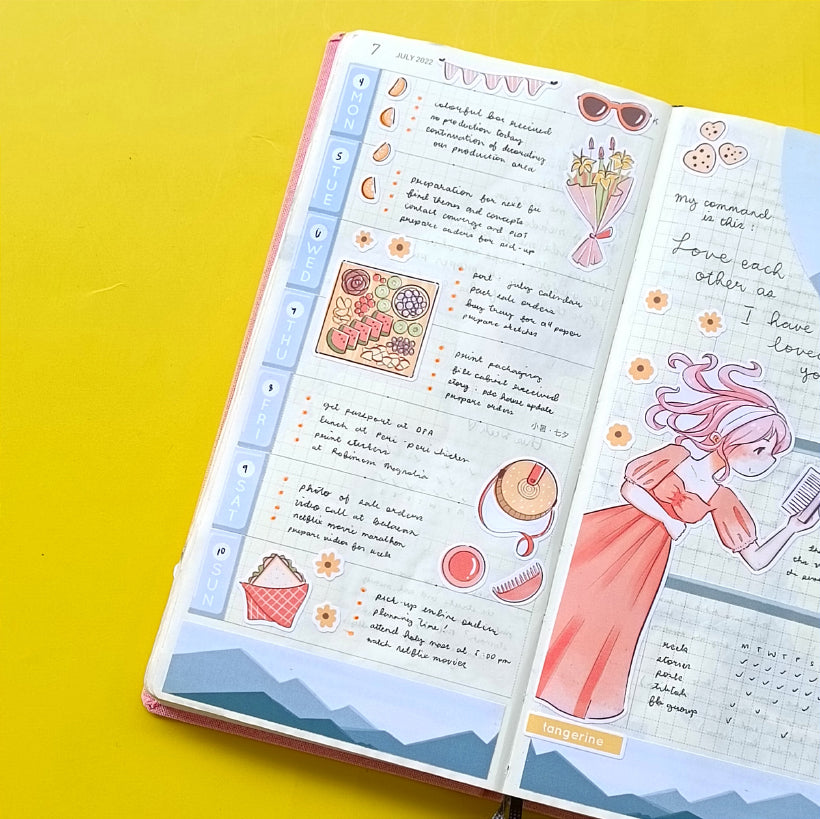 7 JULY 2022
4 MON
colorful box received
no production today
continuation of decorating
our production area
5 TUE
preparation for next
find themes and concepts
contact converge and PLDT
prepare orders for pick-up
6 WED
post : july calendar
pack sale orders
buy tray for a4 paper
prepare sketches
7 THU
print packaging
file cabinet received
story : house update
prepare orders
小暑·七夕
8 FRI
get passport at DFA
lunch at Peri-Peri chicken
print stickers
at Robinsons Magnolia
9 SAT
photo of sale orders
video call at
netflix movie marathon
prepare video for week
10 SUN
pick-up online orders
planning time!
attend holy mass at 5:00 pm
watch netflix movies
my command
is this :
Love each
other as
I have
loved
yo
the
M T W T F S
reels
stories
posts
tiktok
fb group
tangerine